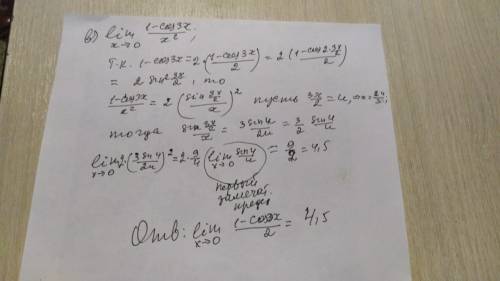 в) lim x→0 (1-cos3x)/x² ;
Т.к. 1-cos3x = 2·(1-cos3x)/2 = 2 (1-cos2·3x/2)/2
= 2 sin² 3x/2, то
(1-cos3x)/x² = 2 (sin 3x/2 / x)² пусть 3x/2 = u, ⇒ x = 2u/3,
тогда sin 3x/2 / x = 3 sin u / 2u = 3/2 sin u / u
lim x→0 2·(3 sin u / 2u)² = 2·9/4 (lim x→0 sin u / u = 9/2 = 4,5
первый
замечат.
предел
Отв: lim x→0 (1-cos3x)/2 = 4,5